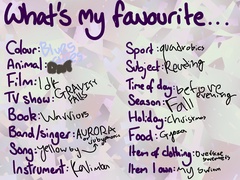 What's my favourite...
Colour: Blues
Animal: Owl
Film: Idk
TV show: GRAVITY FALLS
Book: Warriors
Band/singer: AURORA or
Song: yellow by
Instrument: Kalimba
Sport: quadrobics
Subject: Reading
Time of day: before evening
Season: Fall
Holiday: Christmas
Food:
Item of clothing: Oversize
Item I own: My